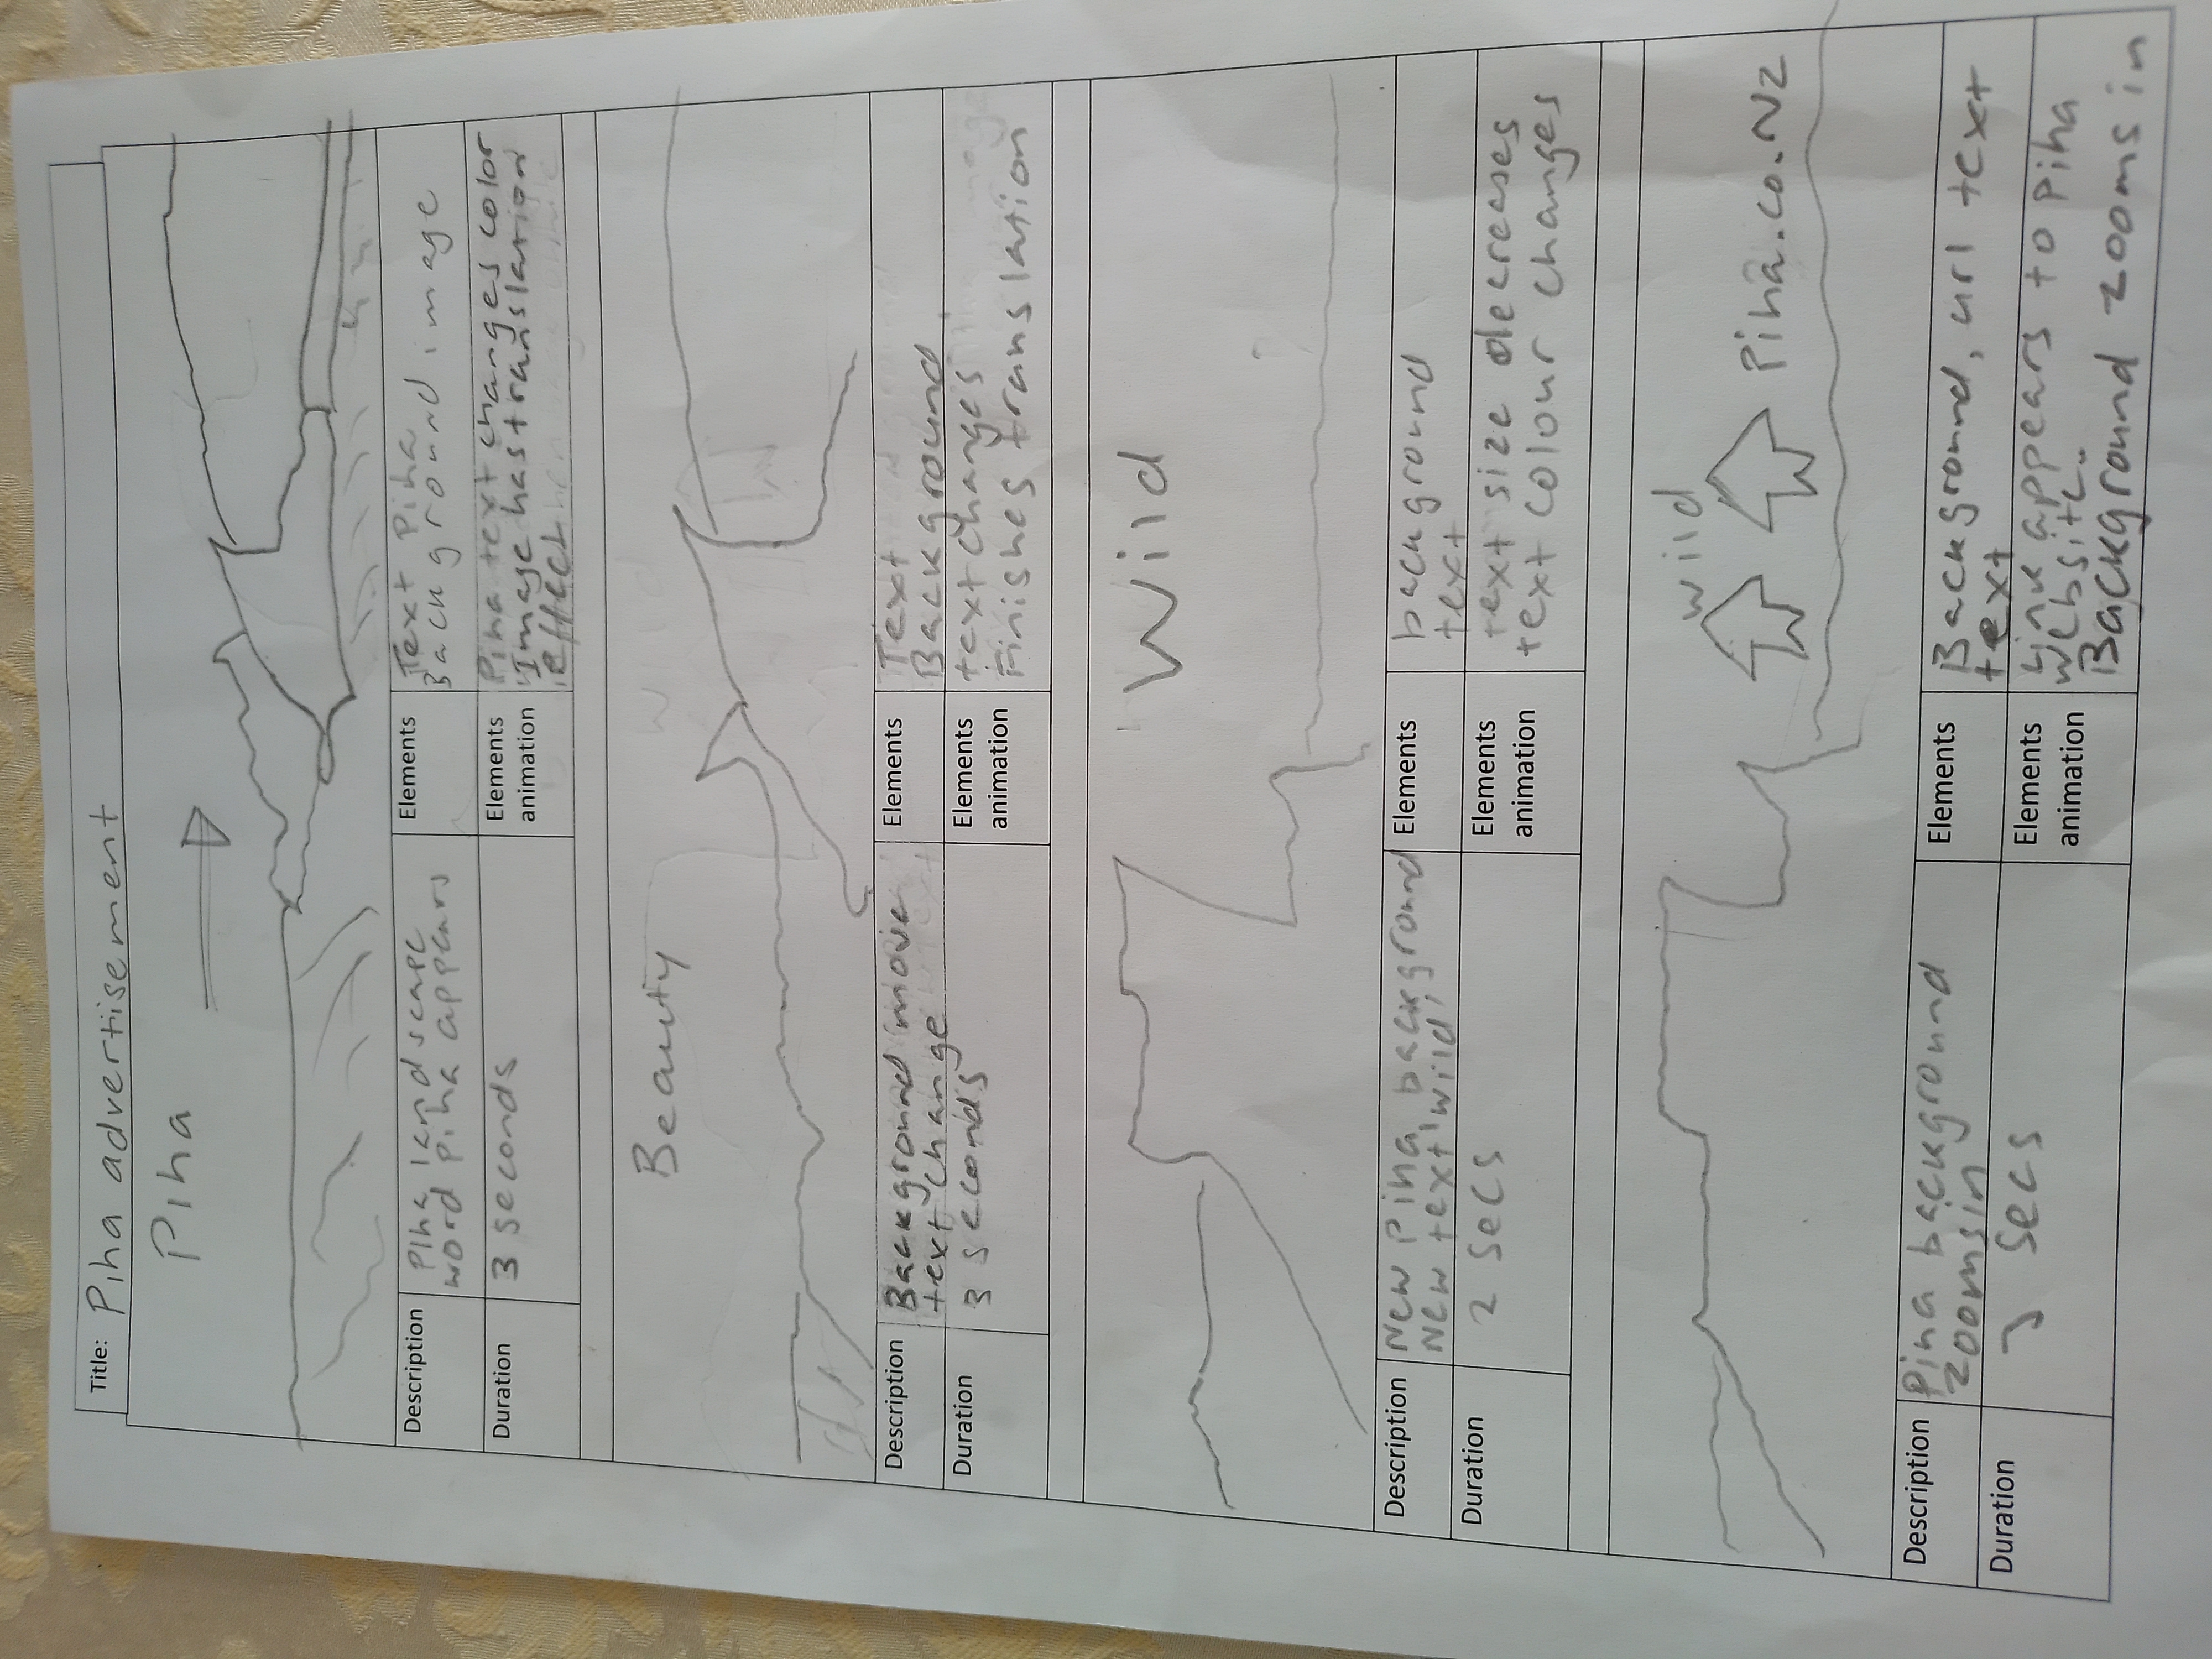 Title: Piha advertisement
Piha
Description Piha landscape
word piha appears
Elements Text Piha
Background image
Duration 3 seconds
Elements
animation
Piha text changes color
Image has translation
effect
Beauty
Description Background move
text change
Elements Text
Background
Duration 3 seconds
Elements
animation
text changes
Finishes translation
Wild
Description New Piha background
New text 'wild'
Elements background
text
Duration 2 secs
Elements
animation
text size decreases
text colour changes
wild
Piha.co.NZ
Description Piha background
zooms in
Elements Background, url text
text
Duration secs
Elements
animation
Link appears to Piha
website.
Background zooms in